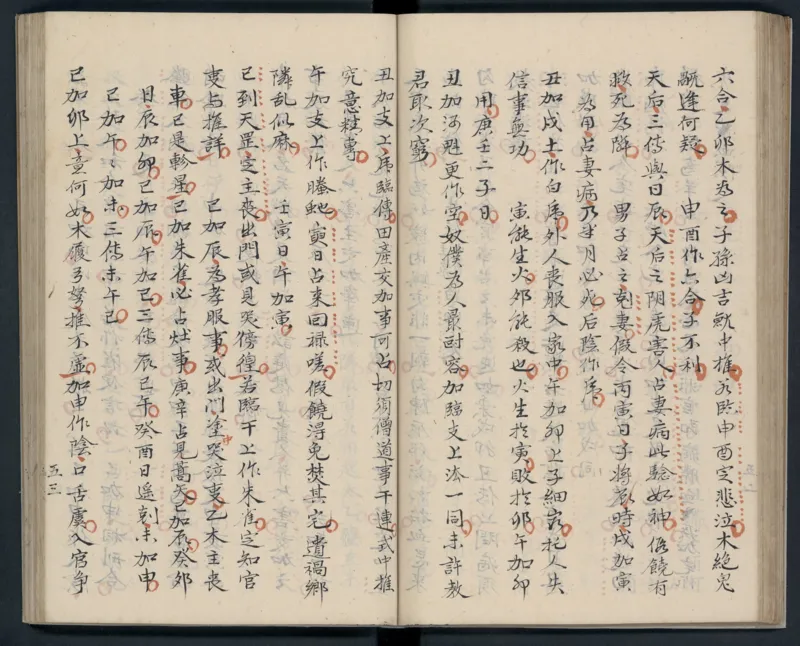 六合乙卯木為之子孫凶吉就中推 亥臨申酉定悲泣木絕鬼
賊逢何疑 申酉作六合子不利
天后三傳與日辰天后之阴虎害人占妻病此驗如神 儻饒有
救死為降 男子占之尅妻假令丙寅日子將辰時戌加寅
為用占妻病乃半月必死后陰作虎
丑加戌土作白虎外人喪服入家中午加卯上子細 托人失
信事無功 寅能生火卯能殺也火生於寅敗於卯午加卯
用庚壬二子日
丑加河魁更作空奴僕為人最耐容加臨支上法一同未許教
君取次窮
丑加支上虎臨傳田產交加事可占切須僧道事干連式中推
究意精專
午加支上作螣虵寅日占來回祿嗟假饒得免焚其宅遭禍鄉
隣乱似麻 壬寅日午加寅
巳到天罡定主喪出門或見哭徬徨若臨干上作朱雀定知官
事与推詳 巳加辰為孝服事或出門塗哭泣事乙木主喪
車巳是軫星巳加朱雀必占灶事庚辛占見蒿矢巳加辰癸卯
日辰加卯巳加辰午加巳三傳辰巳午癸酉日遥剋未加申
巳加午午加未三傳未午巳
巳加卯上意何如木履弓弩推不虛加申作陰口舌虞入官争
五三